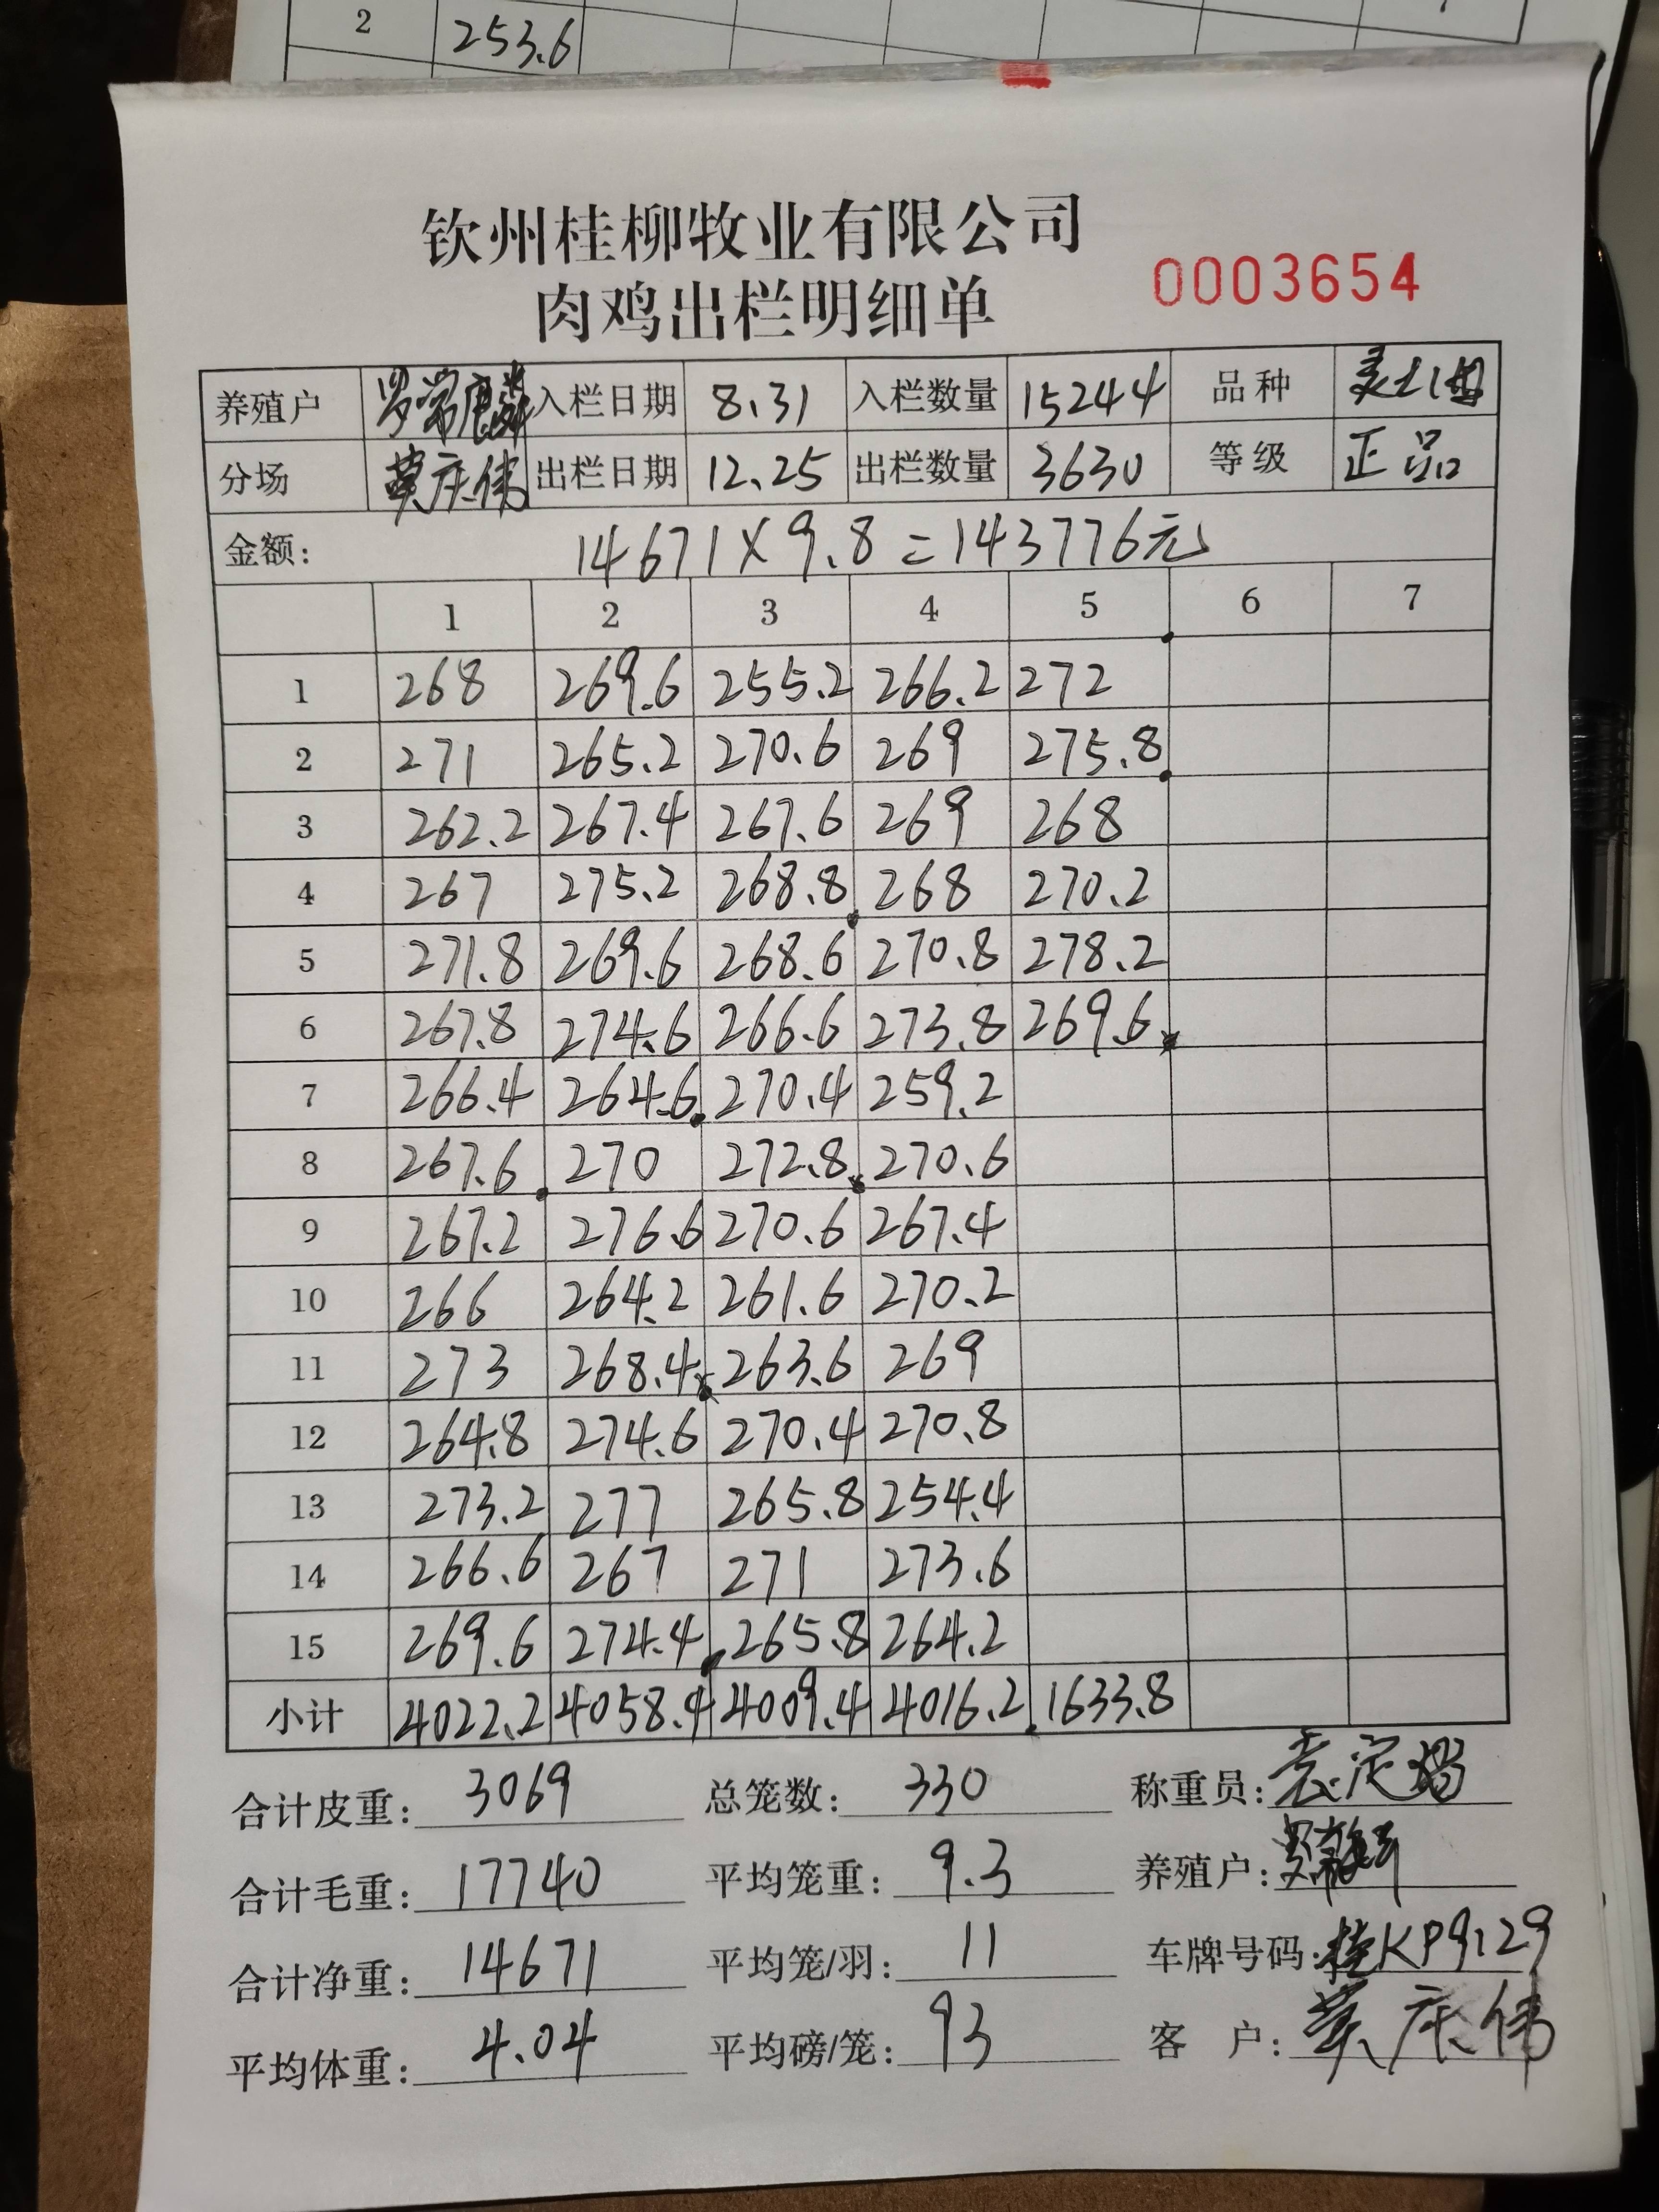 2 253.6
钦州桂柳牧业有限公司
肉鸡出栏明细单 0003654
养殖户 罗常 入栏日期 8.31 入栏数量 15244 品种
分场 莫庆伟 出栏日期 12.25 出栏数量 3630 等级 正品
金额: 14671×9.8=143776元
1 2 3 4 5 6 7
1 268 269.6 255.2 266.2 272
2 271 265.2 270.6 269 275.8
3 262.2 267.4 267.6 269 268
4 267 275.2 268.8 268 270.2
5 271.8 269.6 268.6 270.8 278.2
6 267.8 274.6 266.6 273.8 269.6
7 266.4 264.6 270.4 259.2
8 267.6 270 272.8 270.6
9 267.2 276.6 270.6 267.4
10 266 264.2 261.6 270.2
11 273 268.4 263.6 269
12 264.8 274.6 270.4 270.8
13 273.2 277 265.8 254.4
14 266.6 267 271 273.6
15 269.6 274.4 265.8 264.2
小计 4022.2 4058.4 4009.4 4016.2 1633.8
合计皮重: 3069 总笼数: 330 称重员:
合计毛重: 17740 平均笼重: 9.3 养殖户:
合计净重: 14671 平均笼/羽: 11 车牌号码: 桂KP9129
平均体重: 4.04 平均磅/笼: 93 客户: 莫庆伟